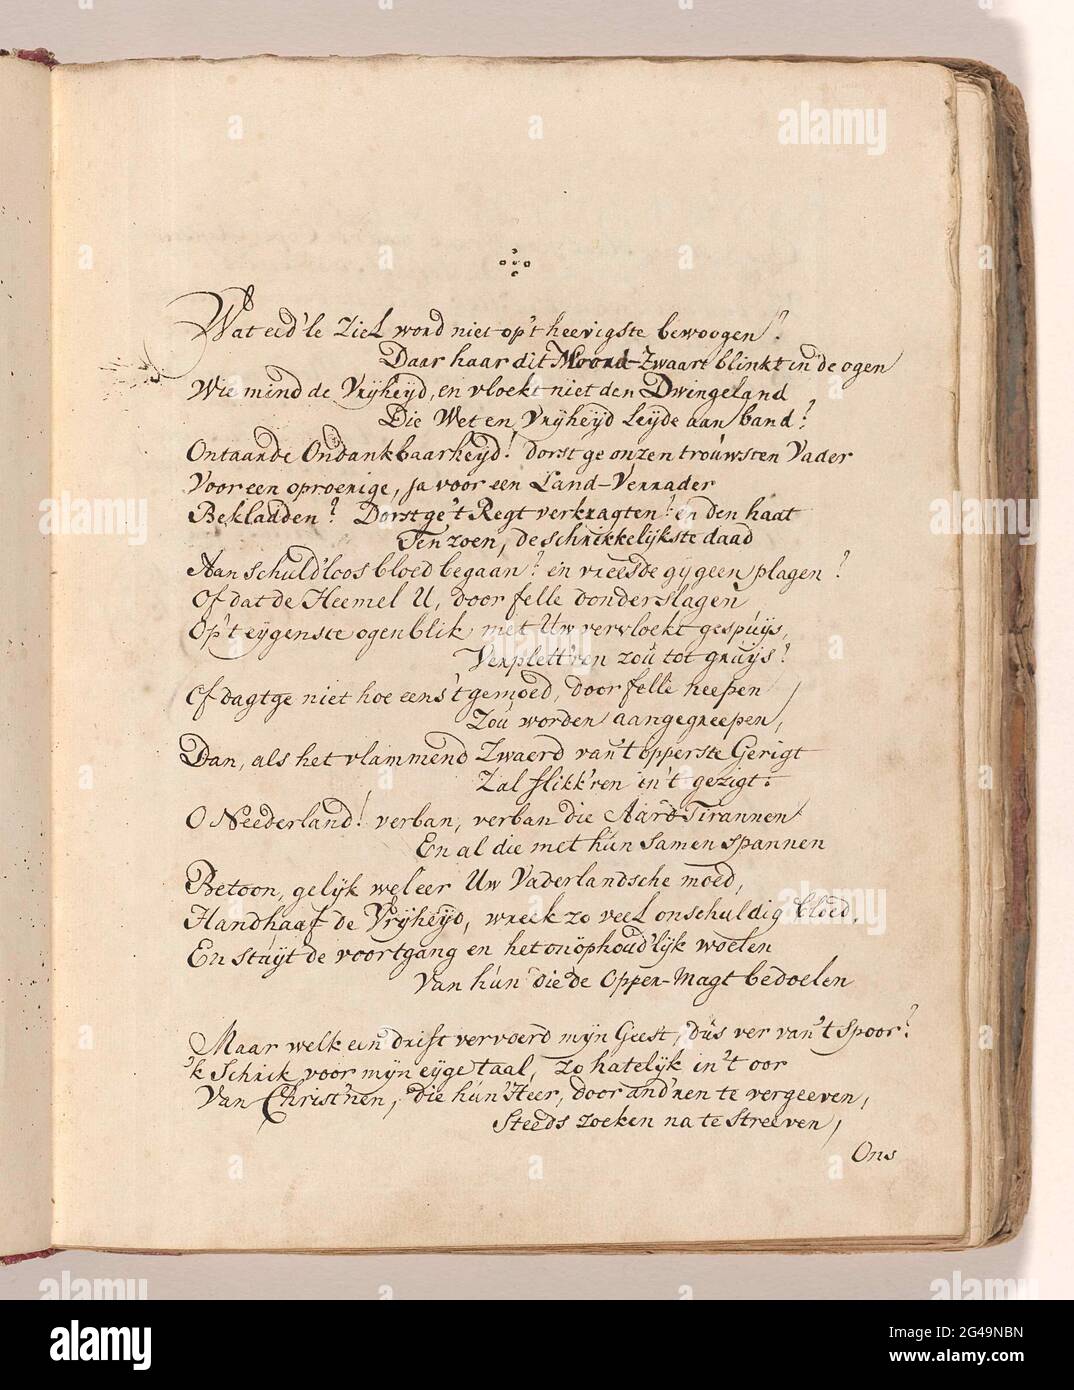 Wat eed'le Ziel word niet op't heevigste bewoogen?
Daar haar dit Moord-Zwaart blinkt in de ogen
Wie mind de Vrijheijd, en vloekt niet den Dwingeland
Die Wet en Vrijheijd Leijde aan band?
Ontaarde Ondankbaarheijd! dorst ge onzen trouwsten Vader
Voor een oproerige, ja voor een Land-Verrader
Bekladden? Dorst ge 't Regt verkragten? en den haat
Ten zoen, de schrikkelijkste daad
Aan schuld'loos bloed begaan? en vreesde gij geen plagen?
Of dat de Heemel U, door felle donderslagen
Op't eijgenste ogenblik met Uw vervloekt gespuijs,
Verplett'ren zou tot gruijs?
Of dagt ge niet hoe eens 't gemoed, door felle neepen
Zou worden aangegreepen,
Dan, als het vlammend Zwaerd van't opperste Gerigt
Zal flikk'ren in't gezigt.
O Neederland! verban, verban die Aard-Tirannen
En al die met hun samenspannen
Betoon, gelijk weleer Uw Vaderlandsche moed,
Handhaaf de Vrijheijd, wreek zo veel onschuldig bloed.
En stuijt de voortgang en het onophoud'lijk woelen
Van hun die de Opper-Magt bedoelen
Maar welk een drift vervoerd mijn Geest, dus ver van 't spoor?
'k Schrik voor mijn eijge taal, zo hatelijk in 't oor
Van Christ'nen, die hun Heer, door and'ren te vergeeven,
Steeds zoeken na te streeven,
Ons
alamy
Image ID: 2G49NBN
www.alamy.com